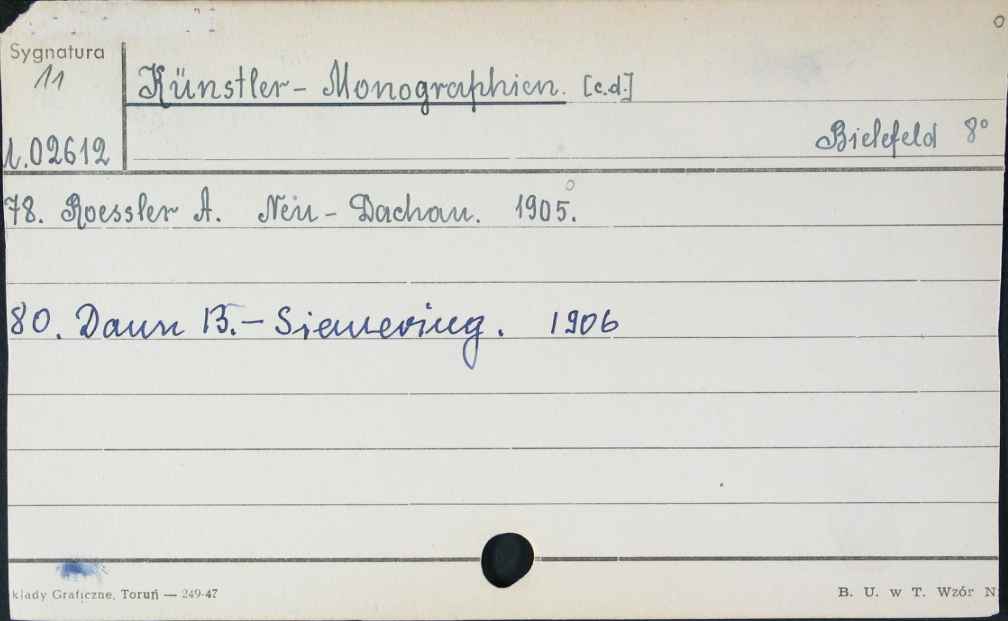 Sygnatura
11
Künstler - Monographien. [c.d.]
Bielefeld 8°
1.02612
78. Roessler A. Neu - Dachau. 1905.
80. Daun B. - Siemering. 1906
kłady Graficzne, Toruń — 249-47
B. U. w T. Wzór N